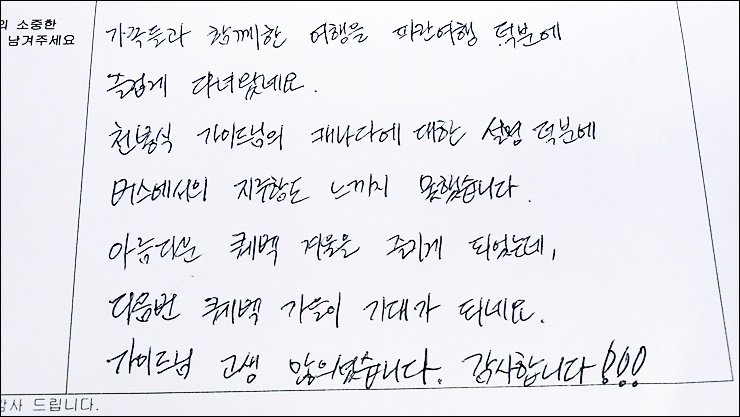 의 소중한
남겨주세요
가족들과 함께한 여행을 파란여행 덕분에
즐겁게 다녀왔네요.
천봉식 가이드님의 캐나다에 대한 설명 덕분에
버스에서의 지루함도 느끼지 못했습니다.
아름다운 퀘벡 겨울을 즐기게 되었는데,
다음번 퀘벡 가을이 기대가 되네요.
가이드님 고생 많으셨습니다. 감사합니다!!!
감사 드립니다.